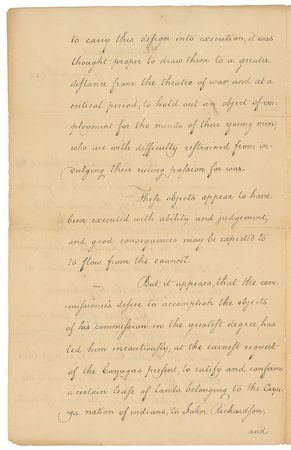 to carry this design into execution, it was
thought proper to draw them to a greater
distance from the theatre of war and at a
critical period, to hold out an object of em-
ployment for the minds of their young men,
who are with difficulty restrained from in-
dulging their ruling passion for war.
These objects appear to have
been executed with ability and judgement,
and good consequences may be expected to
to flow from the council.
But it appears, that the com-
missioner's desire to accomplish the objects
of his commission in the greatest degree, has
led him incautiously, at the earnest request
of the Cayugas present, to ratify and confirm
a certain lease of Lands belonging to the Cayu-
ga nation of indians, to John Richardson,
and